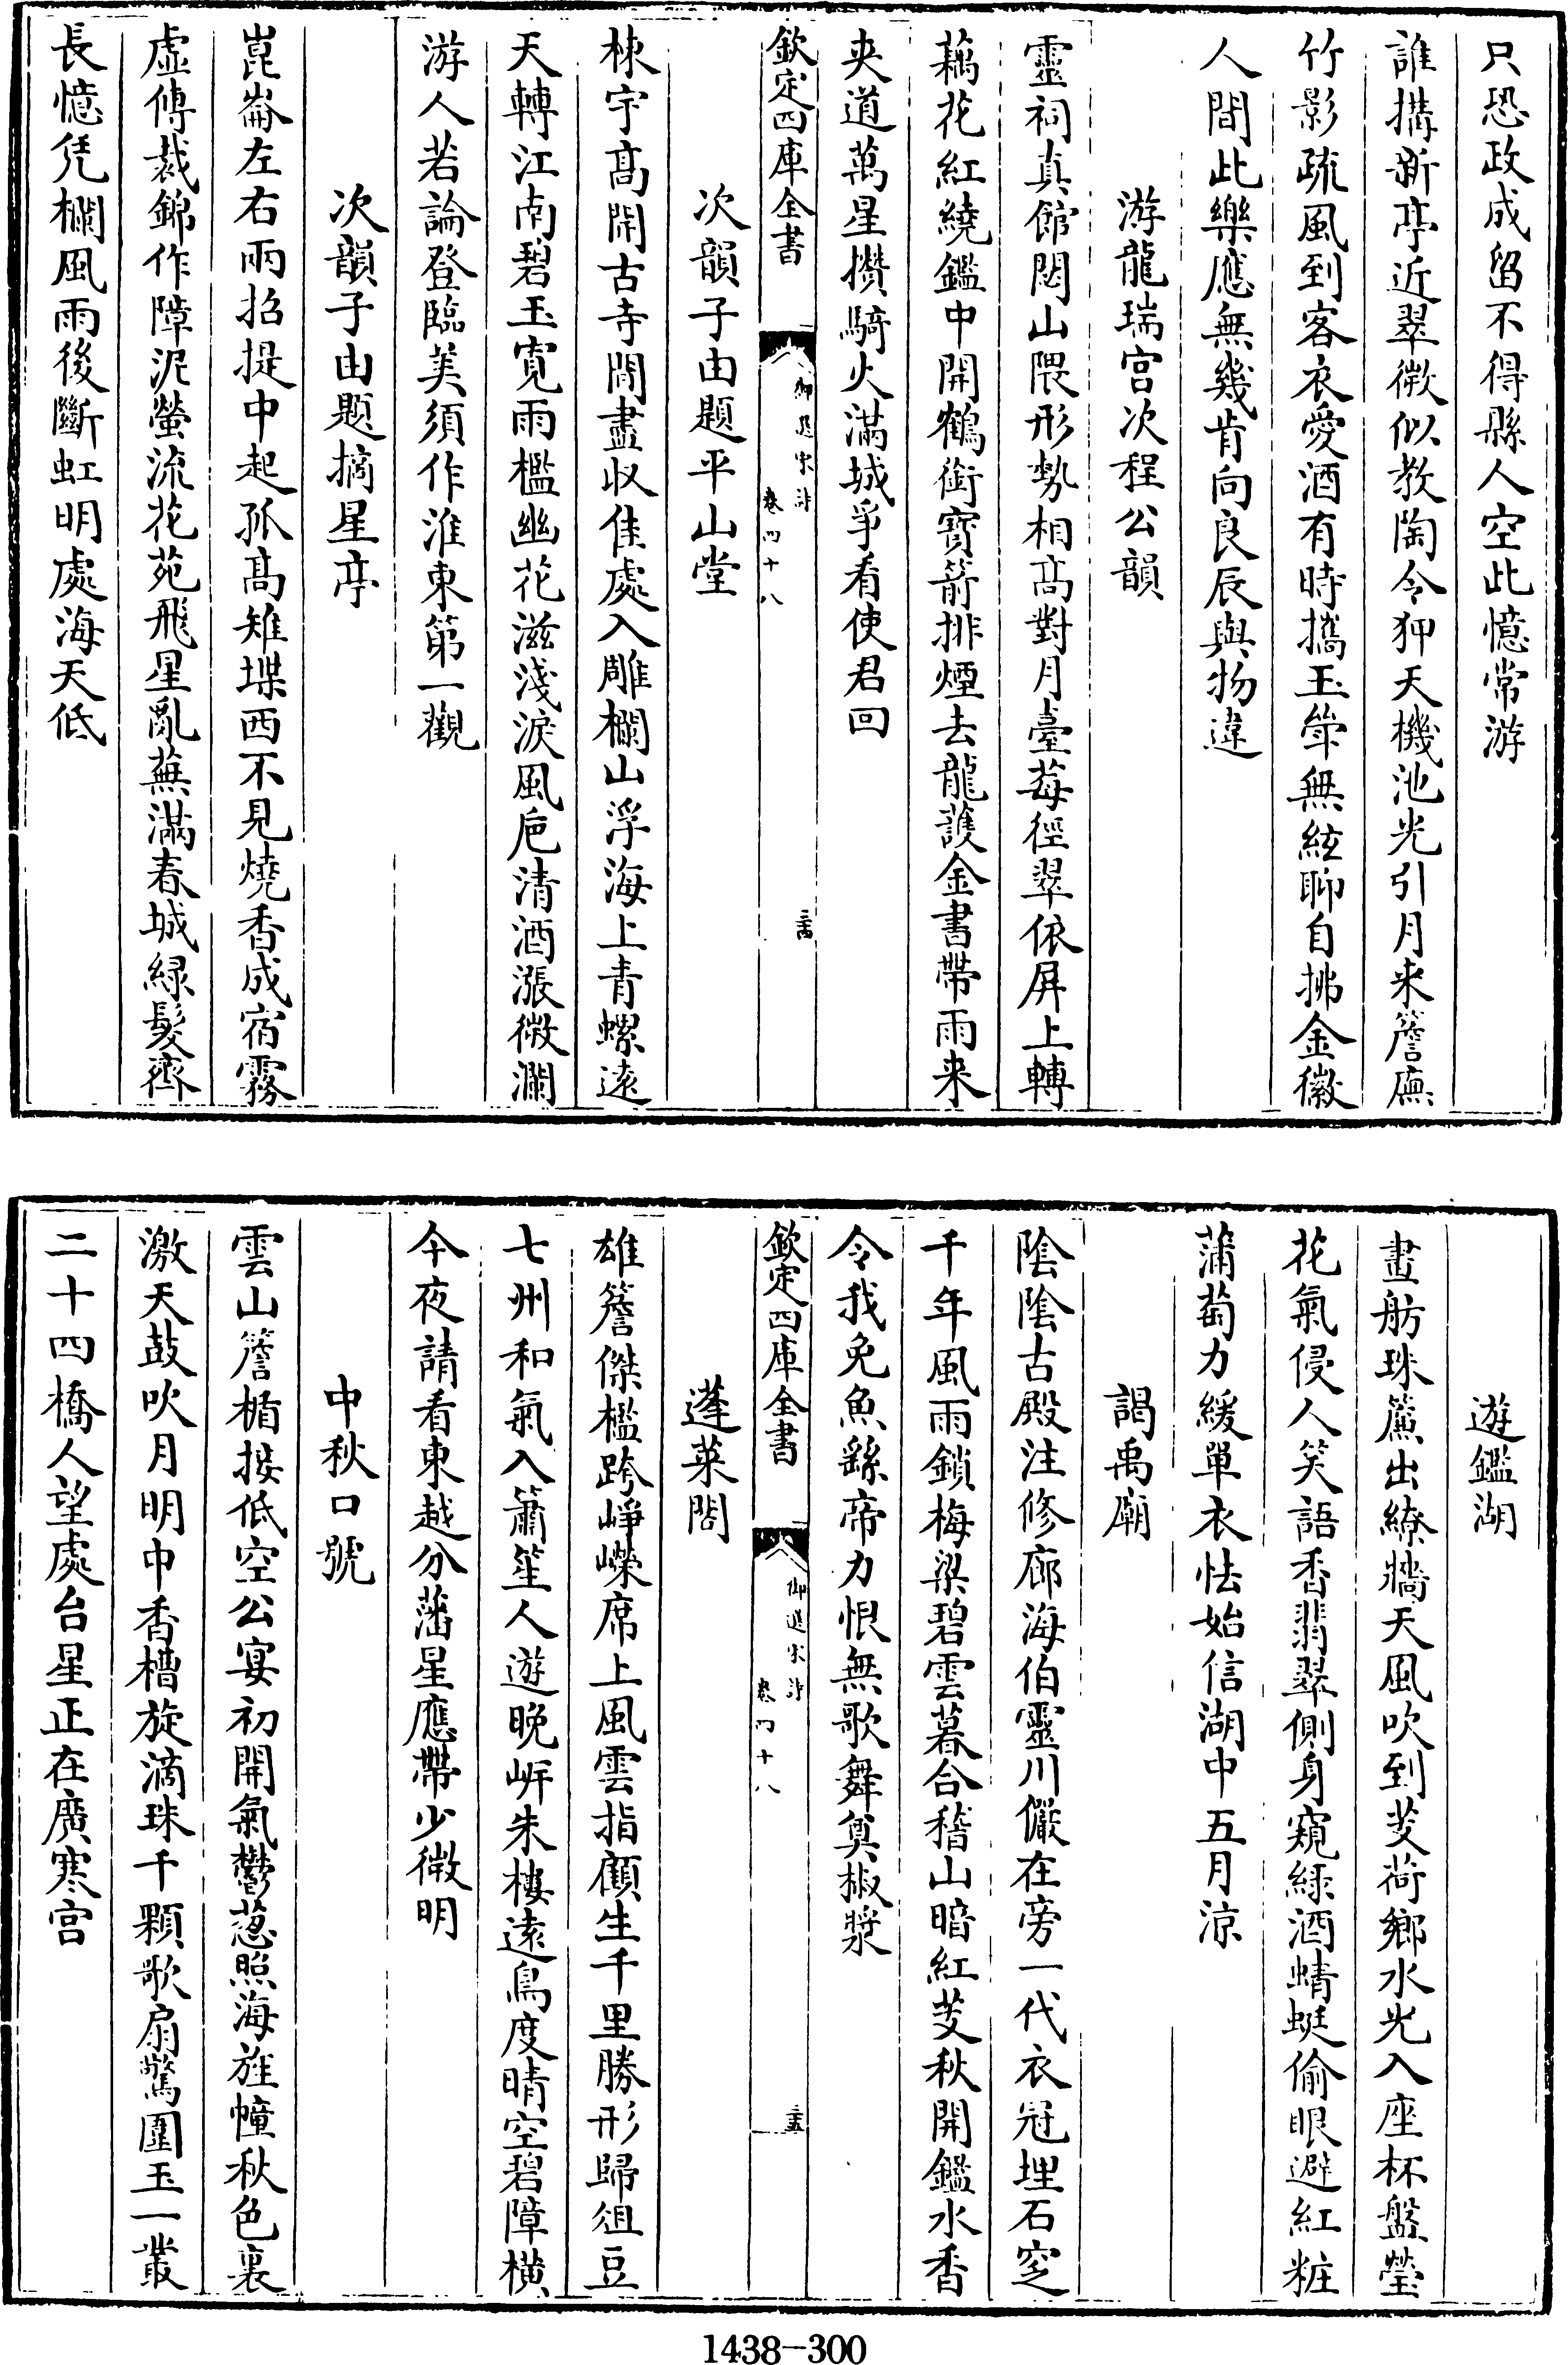 只恐政成留不得縣人空此憶常游
誰搆新亭近翠微似教陶令狎天機池光引月来簷廡
竹影疏風到客衣愛酒有時攜玉斝無絃聊自拂金徽
人間此樂應無幾肯向良辰與物違
游龍瑞宫次程公韻
靈祠真館閟山隈形勢相髙對月臺莓徑翠依屏上轉
藕花紅繞鑑中開鶴銜寳箭排煙去龍䕶金書帶雨来
夹道萬星攢騎火滿城爭看使君回
欽定四庫全書
御選宋詩
卷四十八
三十四
次韻子由題平山堂
棟宇髙開古寺間盡收佳處入雕欄山浮海上青螺遠
天轉江南碧玉寛雨檻幽花滋淺淚風巵清酒漲微瀾
游人若論登臨美須作淮東第一觀
次韻子由題摘星亭
崑崙左右兩招提中起孤髙雉堞西不見燒香成宿霧
虛傳裁錦作障泥螢流花苑飛星亂蕪滿春城緑髮齊
長憶凭欄風雨後斷虹明處海天低
遊鑑湖
畫舫珠簾出繚牆天風吹到芰荷鄉水光入座杯盤瑩
花氣侵人笑語香翡翠側身窺緑酒蜻蜓偷眼避紅粧
蒲萄力緩單衣怯始信湖中五月涼
謁禹廟
陰陰古殿注修廊海伯靈川儼在旁一代衣冠埋石窆
千年風雨鎖梅梁碧雲暮合稽山暗紅芰秋開鑑水香
令我免魚繇帝力恨無歌舞奠椒漿
欽定四庫全書
御選宋詩
卷四十八
三十五
蓬萊閣
雄簷傑檻跨崢嶸席上風雲指顧生千里勝形歸俎豆
七州和氣入簫笙人遊晚岸朱樓遠鳥度晴空碧障横
今夜請看東越分藩星應帶少微明
中秋口號
雲山簷楯接低空公宴初開氣鬱葱照海旌幢秋色裏
激天鼓吹月明中香槽旋滴珠千顆歌扇驚圍玉一叢
二十四橋人望處台星正在廣寒宫
1438-300